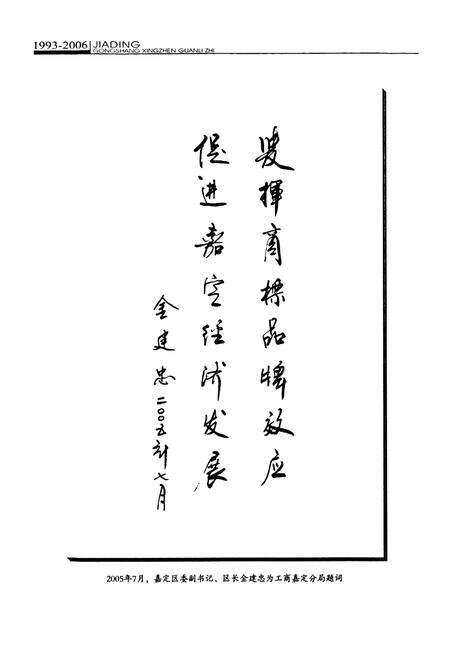 1993-2006 JIADING
GONGSHANG XINGZHEN GUANLI ZHI
发揮商标品牌效应
促进嘉定经济发展
金建忠
二〇〇五年七月
2005年7月，嘉定区委副书记、区长金建忠为工商嘉定分局题词